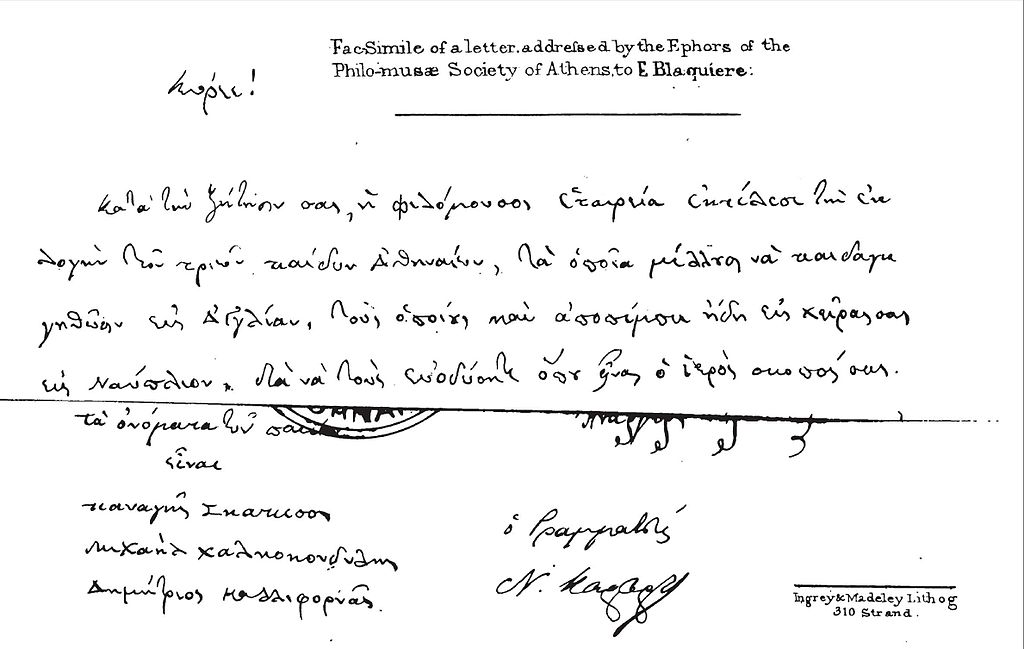 Fac-Simile of a letter. addressed by the Ephors of the
Philo-musæ Society of Athens, to E Blaquiere:
Κύριε!
Κατὰ τὴν ζήτησιν σας, ἡ φιλόμουσος ἑταιρεία ἐκτέλεσε τὴν ἐκ
λογὴν τῶν τριῶν παίδων Ἀθηναίων, τὰ ὁποῖα μέλλει νὰ παιδαγω
γηθῶσιν εἰς Ἀγγλίαν, τοὺς ὁποίους καὶ ἀποπέμπει ἤδη εἰς χεῖρας σας
εἰς Ναύπλιον. διὰ νὰ τοὺς ὅπου εἶναι ὁ ἱερὸς σκοπός σας.
τὰ ὀνόματα τῶν
εἶναι
παναγῆς Σκουζες
Μιχαὴλ Χαλκοκονδύλης
Δημήτριος Καλλιφορνᾶς
ὁ Γραμματεύς
Ν.
Ingrey & Madeley Lithog
310 Strand.